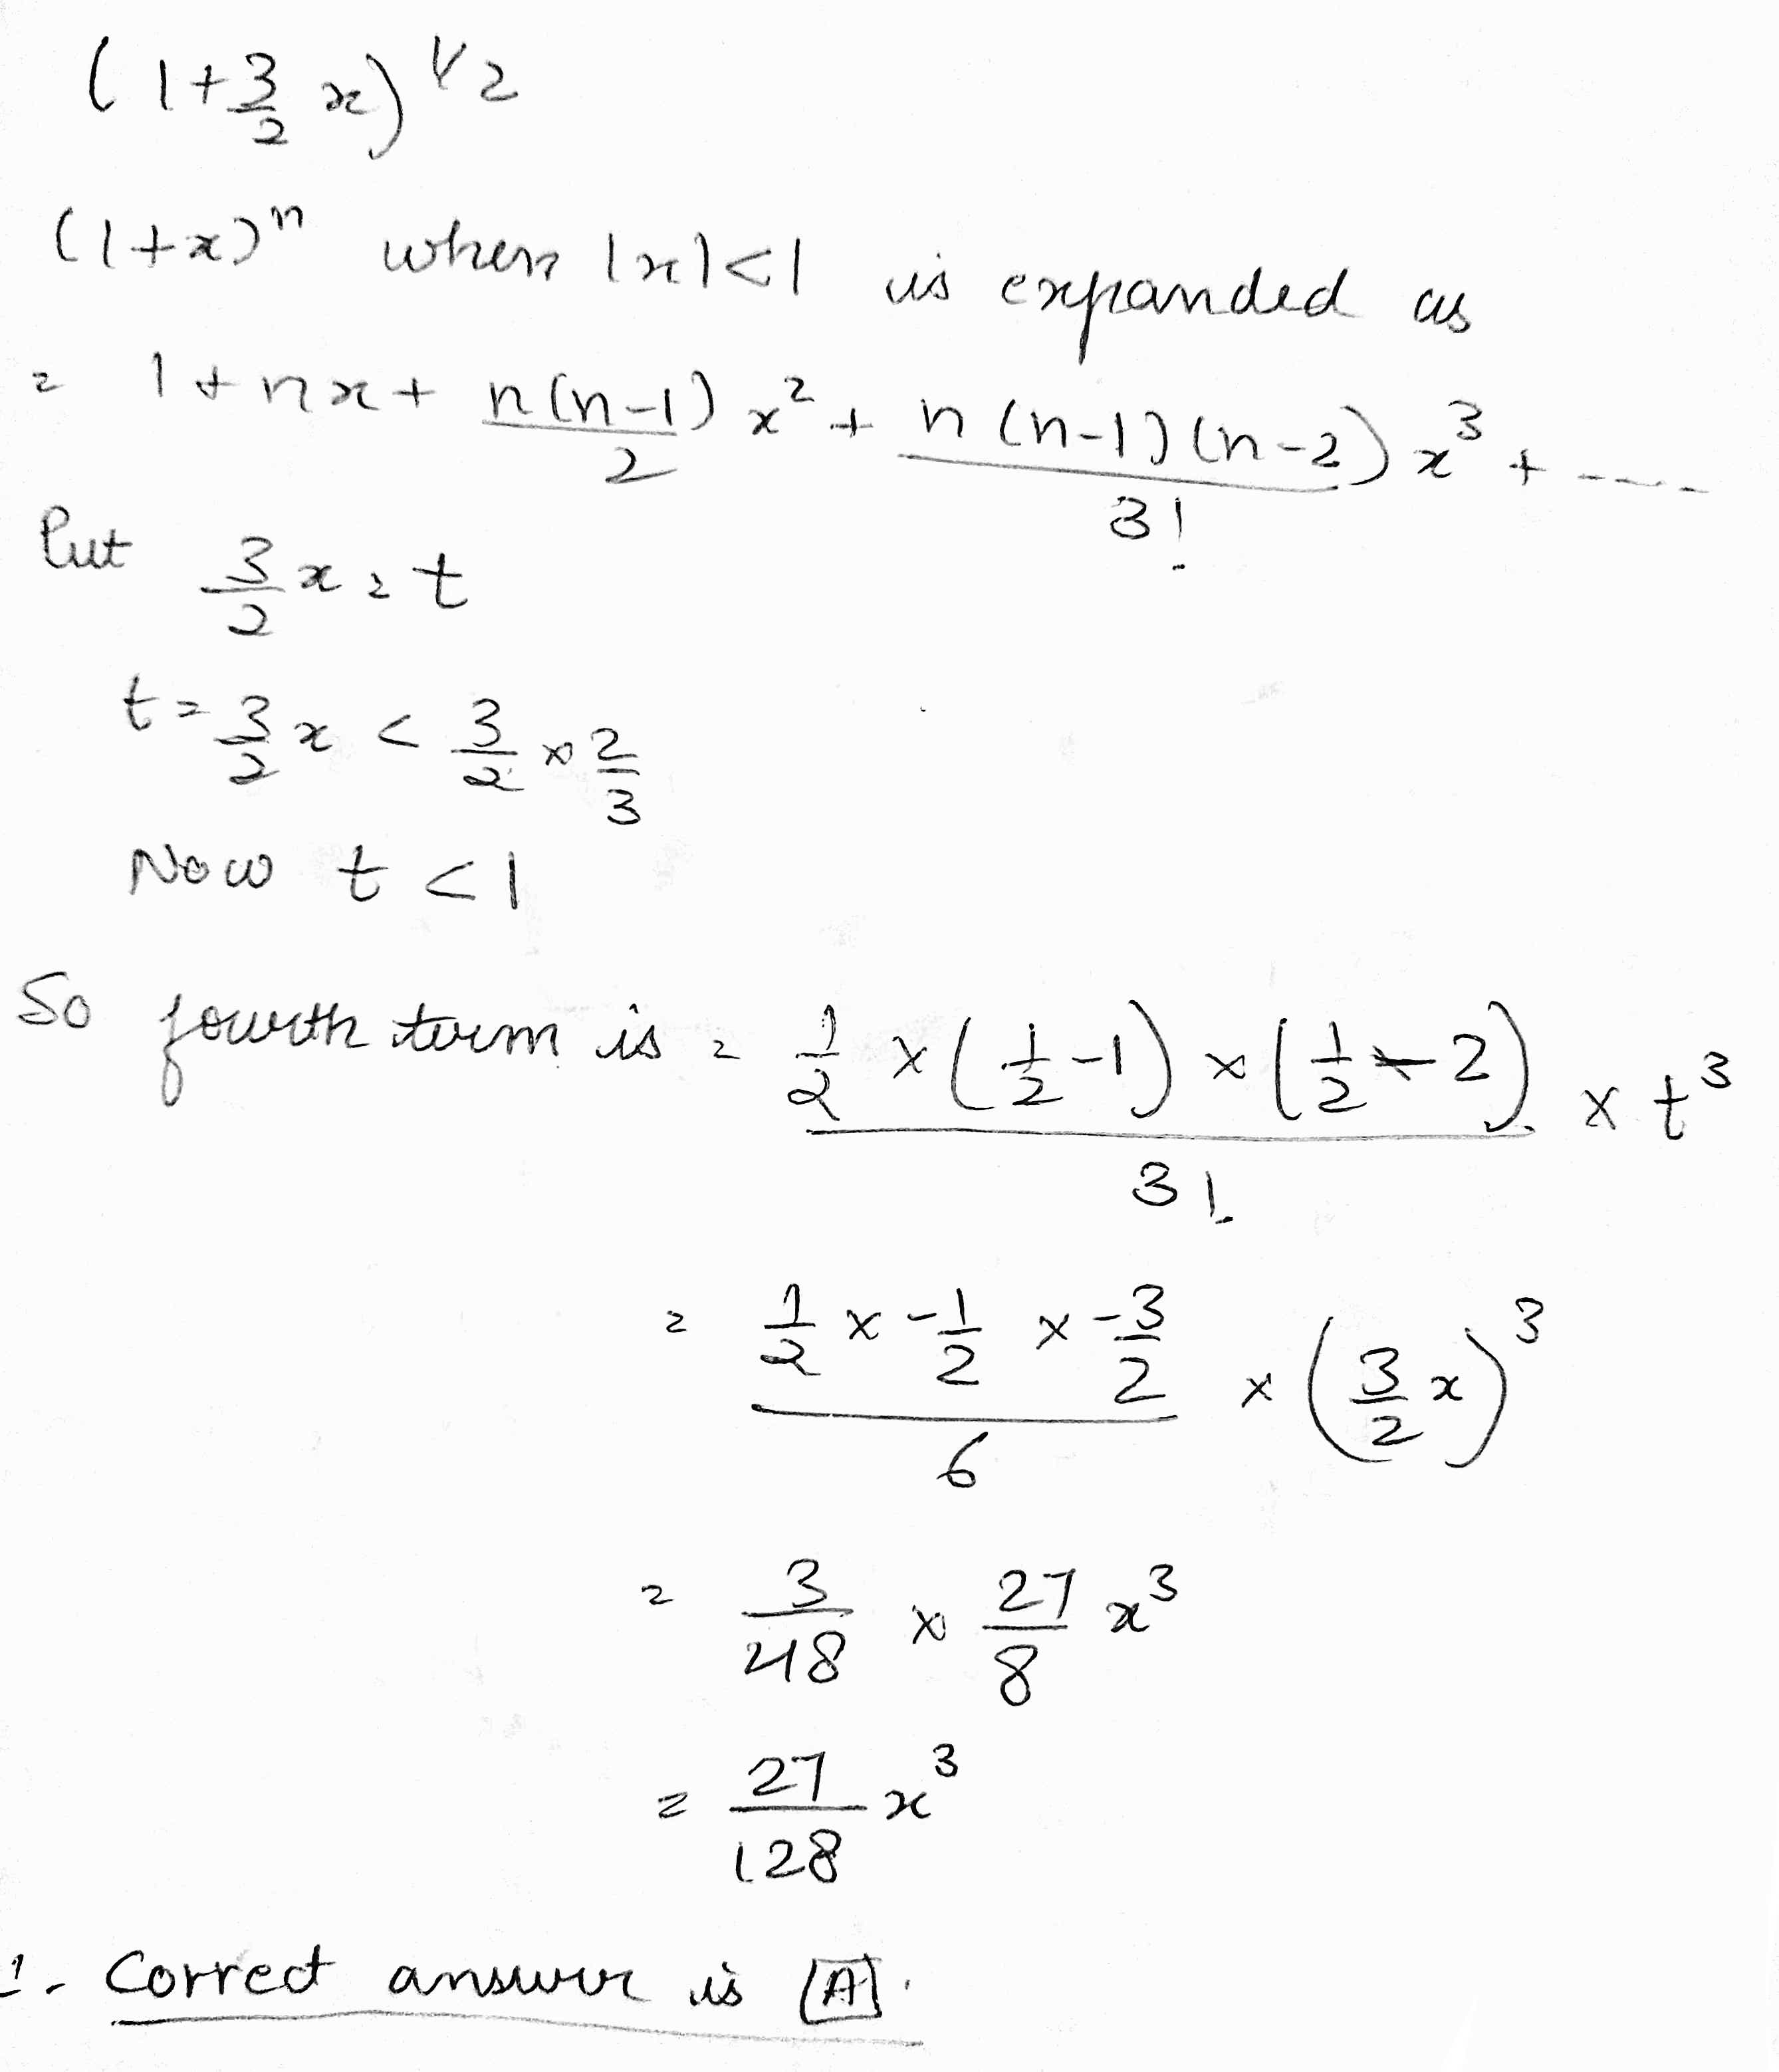 (1+3/2 x)^1/2
(1+x)^n when |x|<1 is expanded as
= 1+nx+ n(n-1)/2 x^2 + n(n-1)(n-2)/3! x^3 + ----
Put 3/2 x = t
t = 3/2 x < 3/2 × 2/3
Now t < 1
So fourth term is = 1/2 × (1/2 -1) × (1/2 - 2) / 3! × t^3
= 1/2 × -1/2 × -3/2 / 6 × (3/2 x)^3
= 3/48 × 27/8 x^3
= 27/128 x^3
Correct answer is [A].